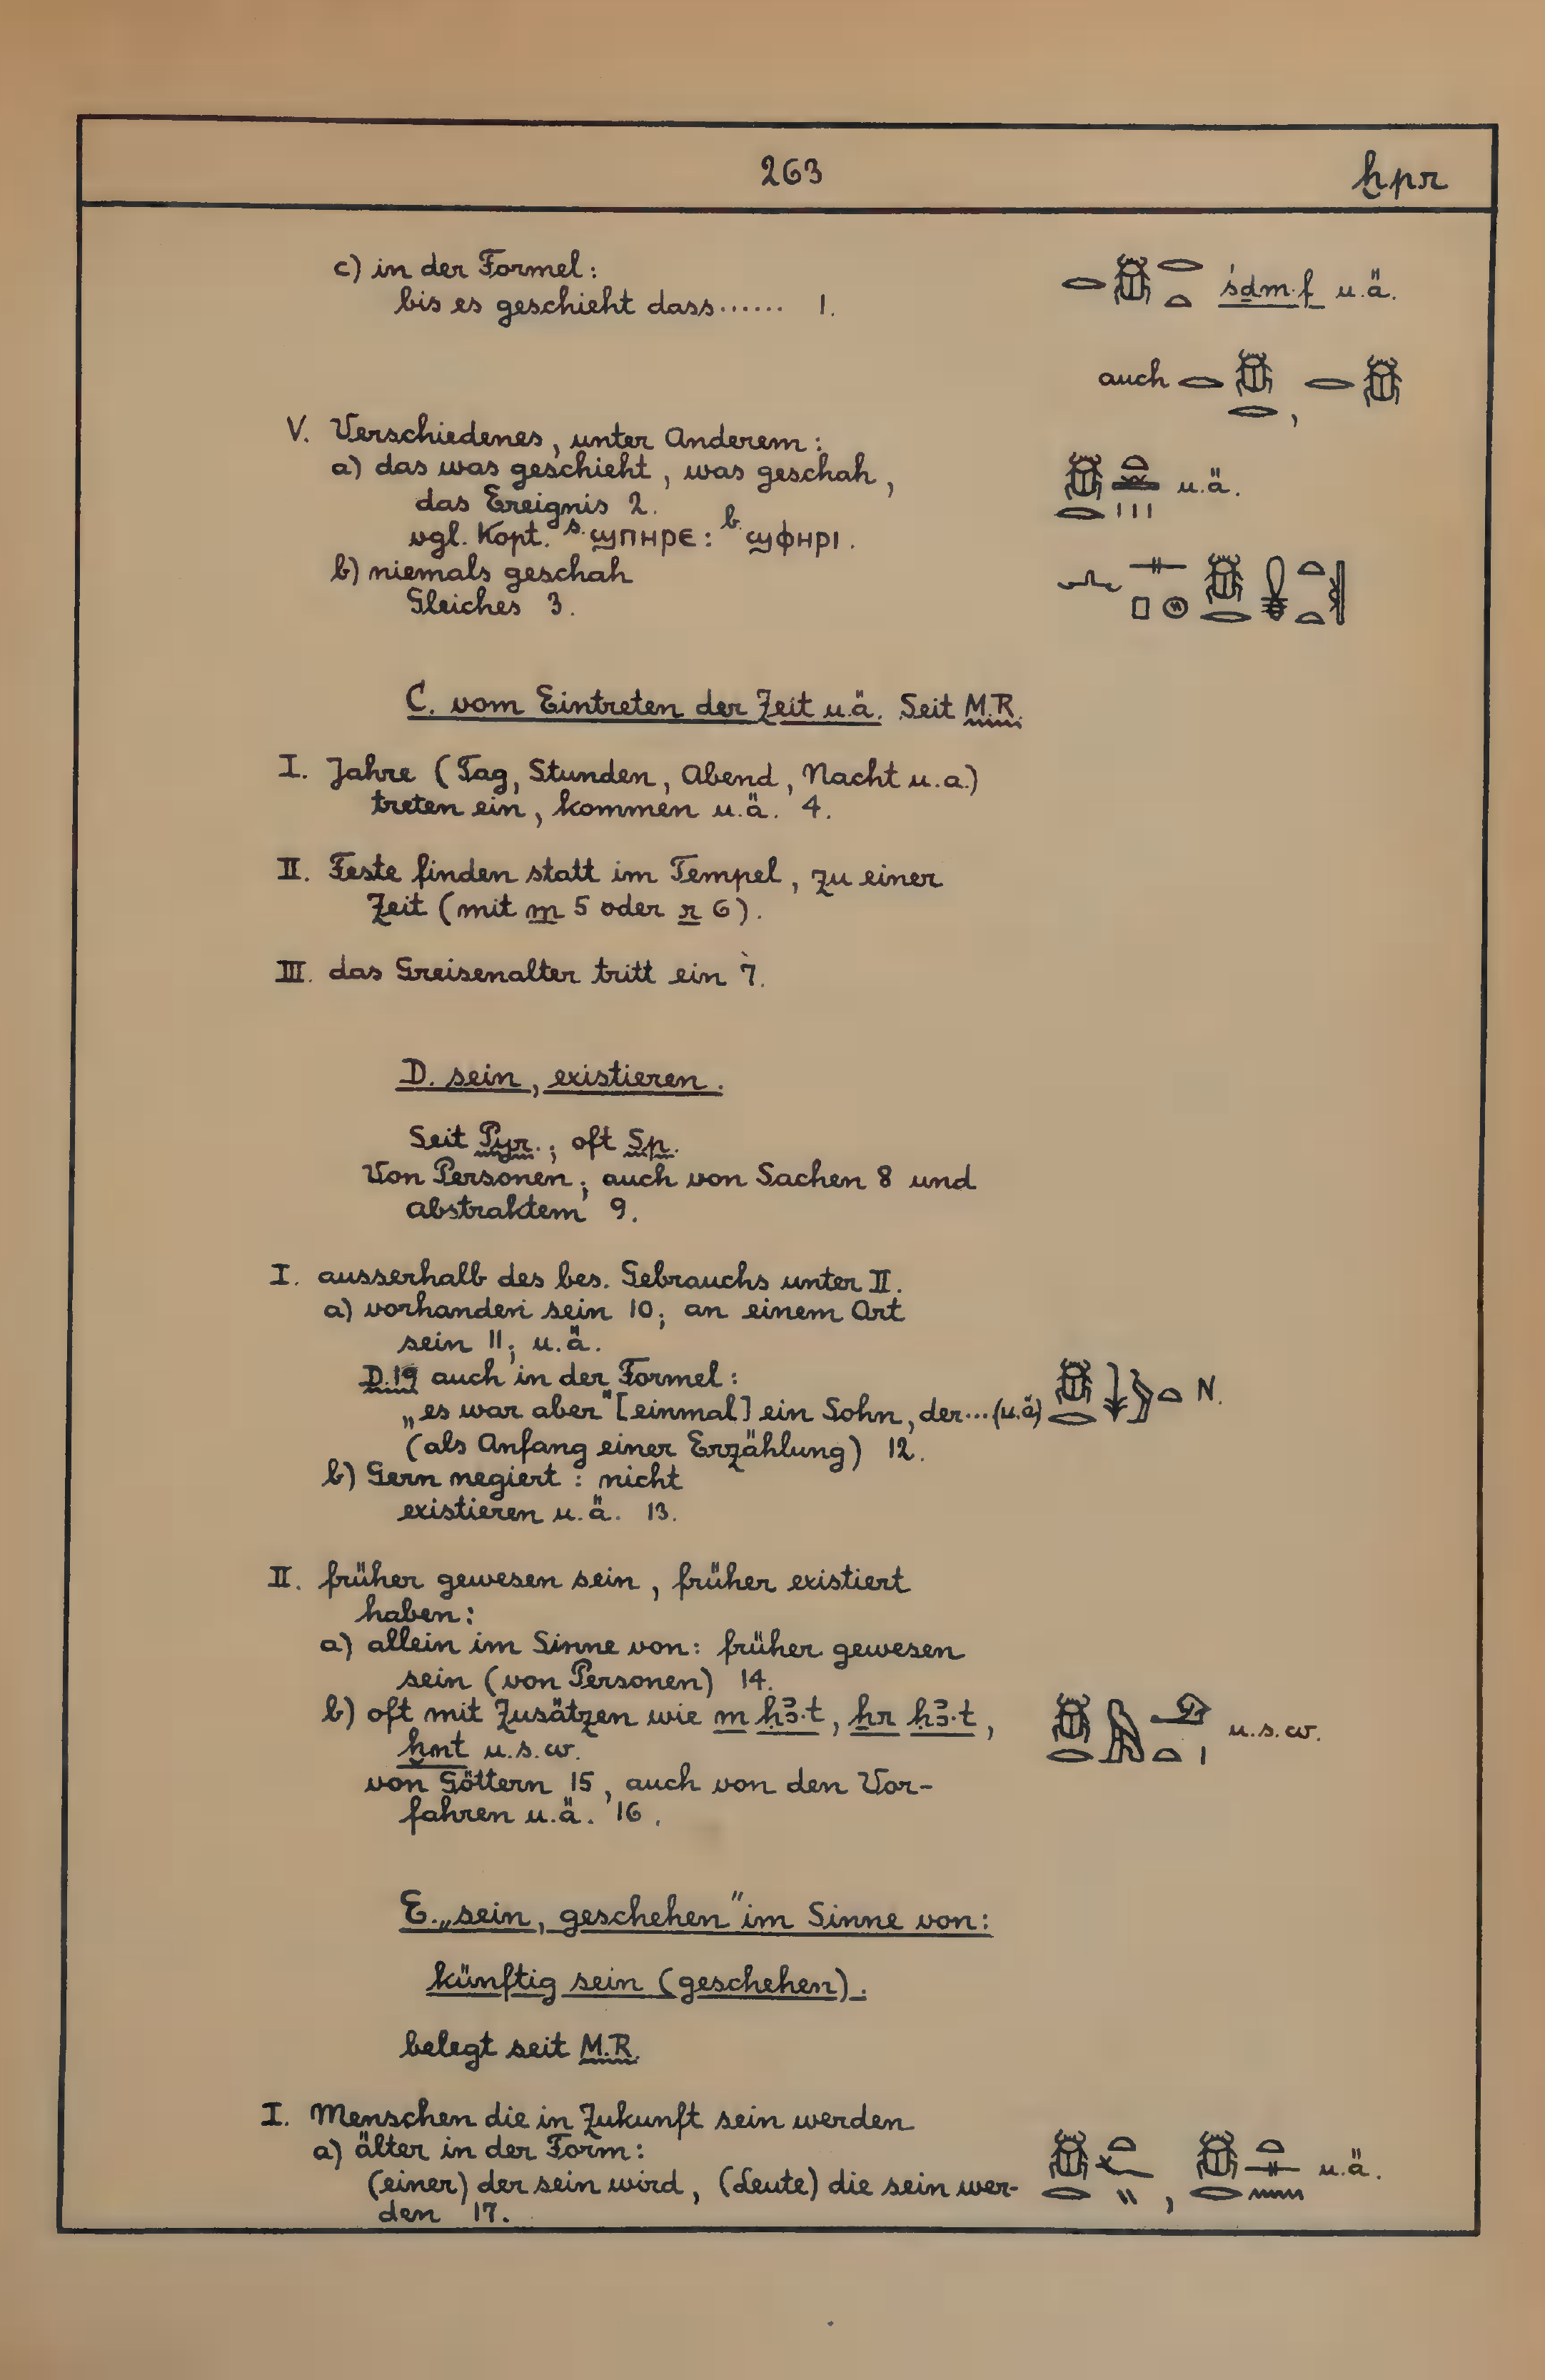 263 ḫpr
c) in der Formel: 𓂋𓆣𓂋𓏏 śḏm·f u.ä.
bis es geschieht dass...... 1.
auch 𓂋𓆣𓂋, 𓂋𓆣
V. Verschiedenes, unter Anderem:
a) das was geschieht, was geschah, 𓆣𓂋𓏏𓏛𓏥 u.ä.
das Ereignis 2.
vgl. Kopt. S. ϣⲡⲏⲣⲉ: b. ϣⲫⲏⲣⲓ.
b) niemals geschah 𓂜𓋴𓊪𓐍𓆣𓂋𓏇𓏏𓏏𓏛
Gleiches 3.
C. vom Eintreten der Zeit u.ä. Seit M.R.
I. Jahre (Tag, Stunden, Abend, Nacht u.a.)
treten ein, kommen u.ä. 4.
II. Feste finden statt im Tempel, zu einer
Zeit (mit m 5 oder r 6).
III. das Greisenalter tritt ein 7.
D. sein, existieren.
Seit Pyr.; oft Sp.
Von Personen; auch von Sachen 8 und
Abstraktem 9.
I. ausserhalb des bes. Gebrauchs unter II.
a) vorhanden sein 10; an einem Ort
sein 11; u.ä.
D.19 auch in der Formel:
„es war aber" [einmal] ein Sohn, der...(u.ä) 𓆣𓂋𓇓𓅱𓏏 N.
(als Anfang einer Erzählung) 12.
b) Gern negiert: nicht
existieren u.ä. 13.
II. früher gewesen sein, früher existiert
haben:
a) allein im Sinne von: früher gewesen
sein (von Personen) 14.
b) oft mit Zusätzen wie m ḥꜣ·t, ḫr ḥꜣ·t, 𓆣𓂋𓅓𓄂𓏏𓏤 u.s.w.
ḫnt u.s.w.
von Göttern 15, auch von den Vor-
fahren u.ä. 16.
E. „sein, geschehen" im Sinne von:
künftig sein (geschehen).
belegt seit M.R.
I. Menschen die in Zukunft sein werden
a) älter in der Form:
(einer) der sein wird, (Leute) die sein wer- 𓆣𓂋𓏏𓆑𓏭, 𓆣𓂋𓏏𓊃𓈖 u.ä.
den 17.